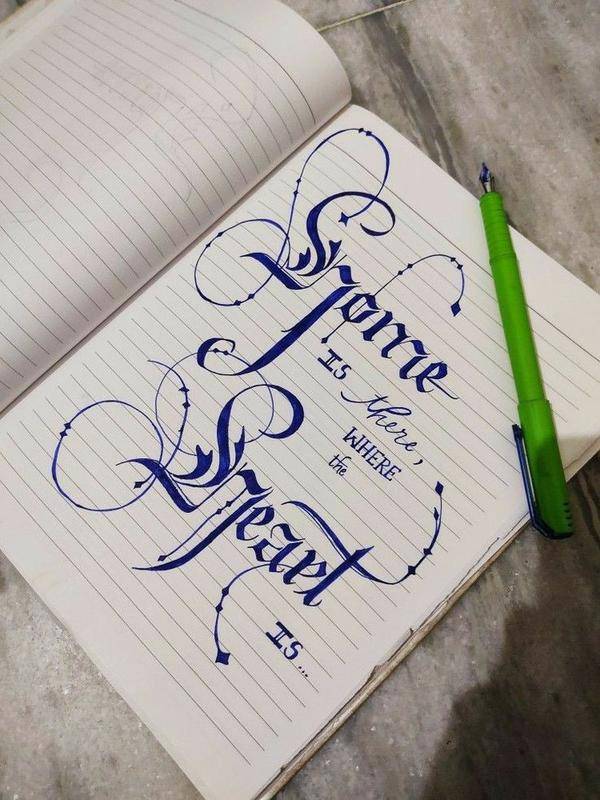 Home
IS there,
WHERE
the
Heart
IS...